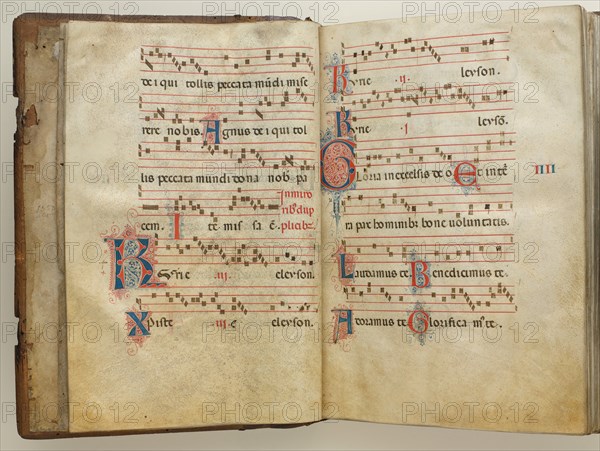 de i qui tollis peccata mundi mise
rere nobis. Agnus de i qui tol
lis peccata mundi dona nob pa
cem. I te mis sa ē.
Kyrie .iii. eleyson.
Xpiste .iii. e eleyson.
Kyrie .ii. leyson.
Kyrie .i leysō.
Gloria in excelsis de o Et in te
IIII
ra pax hominib; bone uoluntatis.
Laudamus te. Benedicimus te.
Adoramus te Glorifica mꝰ te.
PHOTO12